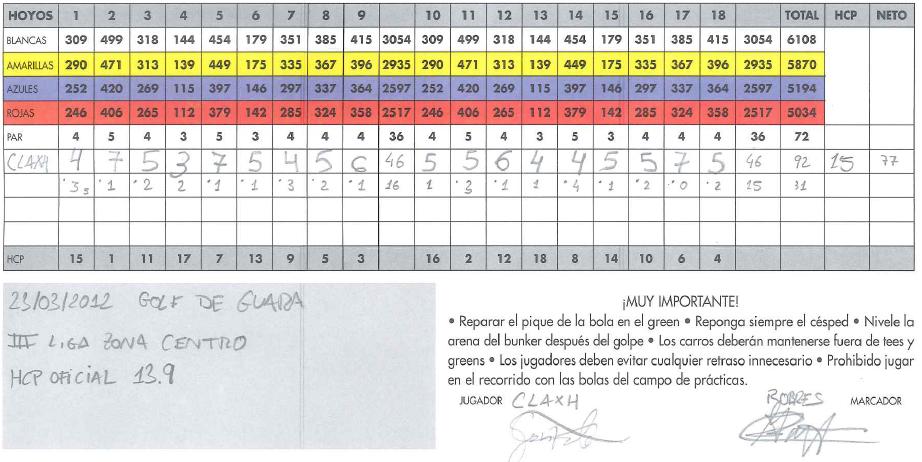 HOYOS 1 2 3 4 5 6 7 8 9 10 11 12 13 14 15 16 17 18 TOTAL HCP NETO
BLANCAS 309 499 318 144 454 179 351 385 415 3054 309 499 318 144 454 179 351 385 415 3054 6108
AMARILLAS 290 471 313 139 449 175 335 367 396 2935 290 471 313 139 449 175 335 367 396 2935 5870
AZULES 252 420 269 115 397 146 297 337 364 2597 252 420 269 115 397 146 297 337 364 2597 5194
ROJAS 246 406 265 112 379 142 285 324 358 2517 246 406 265 112 379 142 285 324 358 2517 5034
PAR 4 5 4 3 5 3 4 4 4 36 4 5 4 3 5 3 4 4 4 36 72
CLAXH 4 7 5 3 7 5 4 5 6 46 5 5 6 4 4 5 5 7 5 46 92 15 77
3 1 2 2 1 1 3 2 1 16 1 3 1 1 4 1 2 0 2 15 31
HCP 15 1 11 17 7 13 9 5 3 16 2 12 18 8 14 10 6 4
23/03/2012 GOLF DE GUARA
III LIGA ZONA CENTRO
HCP OFICIAL 13.9
¡MUY IMPORTANTE!
• Reparar el pique de la bola en el green • Reponga siempre el césped • Nivele la
arena del bunker después del golpe • Los carros deberán mantenerse fuera de tees y
greens • Los jugadores deben evitar cualquier retraso innecesario • Prohibido jugar
en el recorrido con las bolas del campo de prácticas.
JUGADOR CLAXH BOBRES MARCADOR